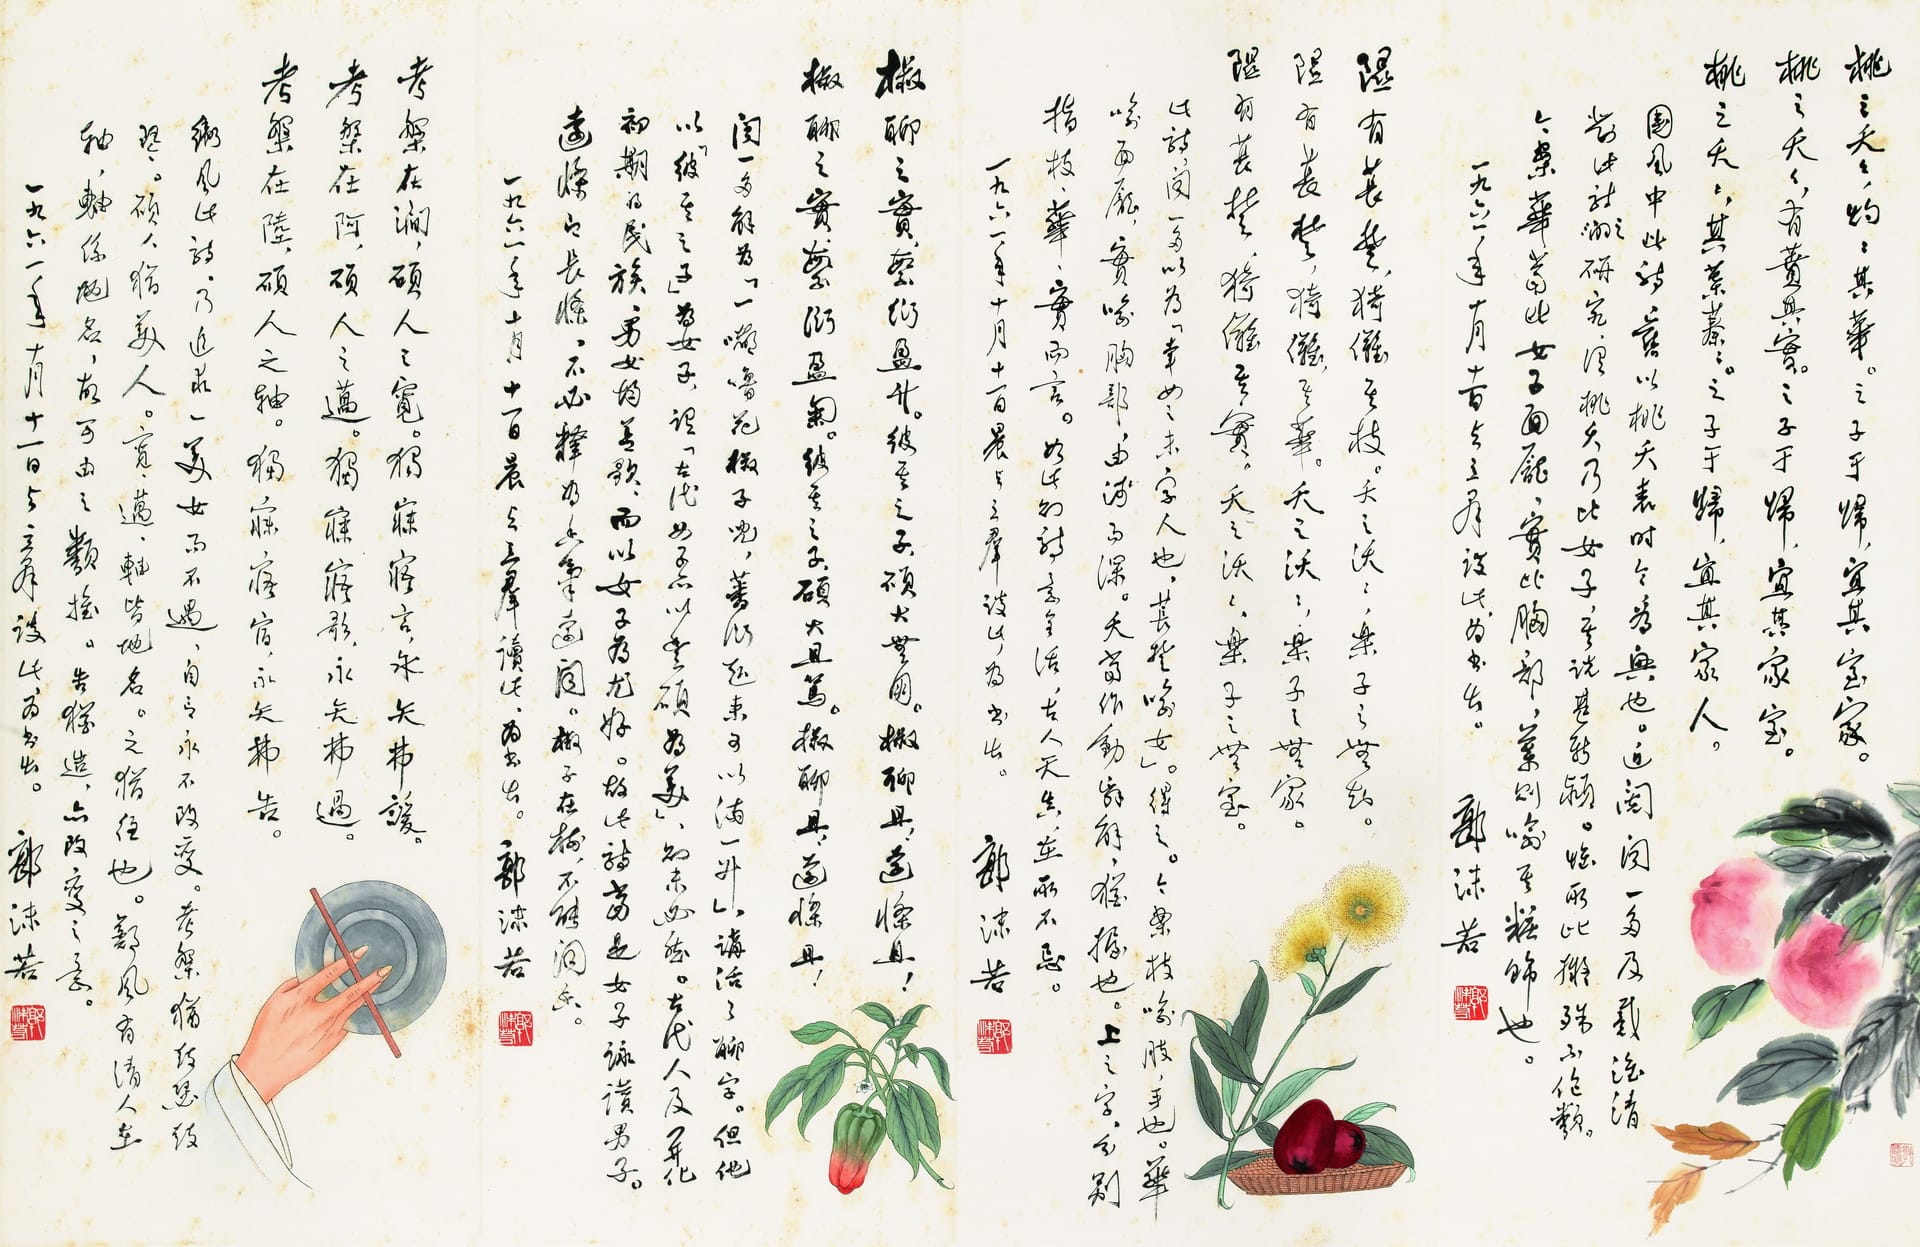 桃之夭々，灼々其華。之子于歸，宜其室家。
桃之夭々，有蕡其實。之子于歸，宜其家室。
桃之夭々，其葉蓁々。之子于歸，宜其家人。
國風中此詩，舊以桃夭表時令，為興也。近閱聞一多及戴濬清
對此詩之研究，
今案華喻此女子面龐，實比胸部，葉則喻其粧飾也。
一九六一年十月十一日与立群談此，為書出。
郭沫若
隰有萇楚，猗儺其枝。夭之沃々，樂子之無知。
隰有萇楚，猗儺其華。夭之沃々，樂子之無家。
隰有萇楚，猗儺其實。夭之沃々，樂子之無室。
此詩，聞一多以為「幸女之未字人也，萇楚喻女」。得之。今案枝喻肢，手也。華
喻面龐，實喻胸部，由淺而深。夭當作動詞解，猶擾也。上之字，分別
指枝、華、實而言。如此則詩意全活，古人天真，在所不忌。
一九六一年十月十一日晨与立群談此，為書出。
郭沫若
椒聊之實，蕃衍盈升。彼其之子，碩大無朋。椒聊且，遠條且！
椒聊之實，蕃衍盈匊。彼其之子，碩大且篤。椒聊且，遠條且！
聞一多解為「一嘟嚕花椒子兒，蕃衍起來可以滿一升」，講活了聊字。但他
以「彼其之子」為女子，謂「古代女子亦以豐碩為美」，則未必然。古代人及開化
初期的民族，男女均善歌，而以女子為尤好。故此詩當是女子詠讚男子。
遠條即長條，不必釋為香氣遠聞。椒子在樹，不能聞香。
一九六一年十月十一日晨与立群讀此，為書出。
郭沫若
考槃在澗，碩人之寬。獨寐寤言，永矢弗諼。
考槃在阿，碩人之薖。獨寐寤歌，永矢弗過。
考槃在陸，碩人之軸。獨寐寤宿，永矢弗告。
衛風此詩，乃追求一美女而不遇，自言永不改變。考槃猶鼓瑟鼓
琴。碩人猶美人。寬、薖、軸皆地名。之猶往也。鄭風有清人在
軸，軸係地名，故可由之類推。告猶造，亦改變之意。
一九六一年十月十一日与立群談此，為書出。
郭沫若